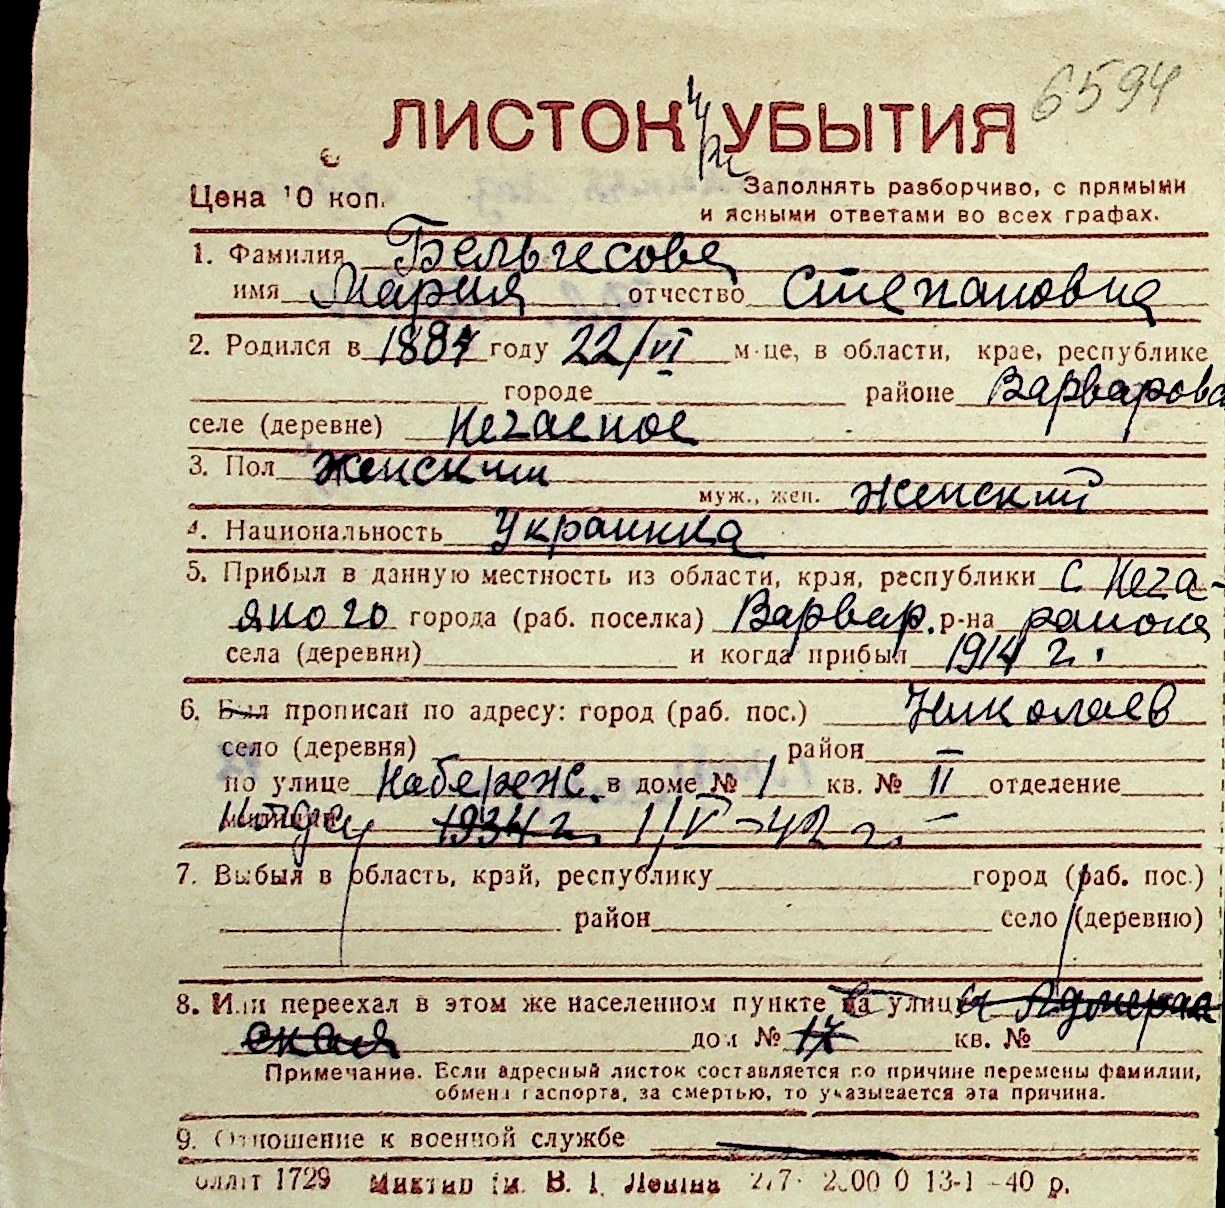 6594
ЛИСТОК УБЫТИЯ
Цена 10 коп.
Заполнять разборчиво, с прямыми
и ясными ответами во всех графах.
1. Фамилия Бельчесова
имя Мария отчество Степановна
2. Родился в 1884 году 22/VI м-це, в области, крае, республике
городе районе Варварова
селе (деревне) Нечаеное
3. Пол женский
муж., жен. женский
4. Национальность Украинка
5. Прибыл в данную местность из области, края, республики с Неча-
яного города (раб. поселка) Варвар. р-на района
села (деревни) и когда прибыл 1914 г.
6. Был прописан по адресу: город (раб. пос.) Николаев
село (деревня) район
по улице Набережн. в доме № 1 кв. № II отделение
милиции 1934 г. 1/V-42 г.
7. Выбыл в область, край, республику город (раб. пос.)
район село (деревню)
8. Или переехал в этом же населенном пункте на улицу Адмирал
ская дом № 17 кв. №
Примечание. Если адресный листок составляется по причине перемены фамилии,
обмена паспорта, за смертью, то указывается эта причина.
9. Отношение к военной службе
1729 им. В. И. Ленина 13-1-40 р.